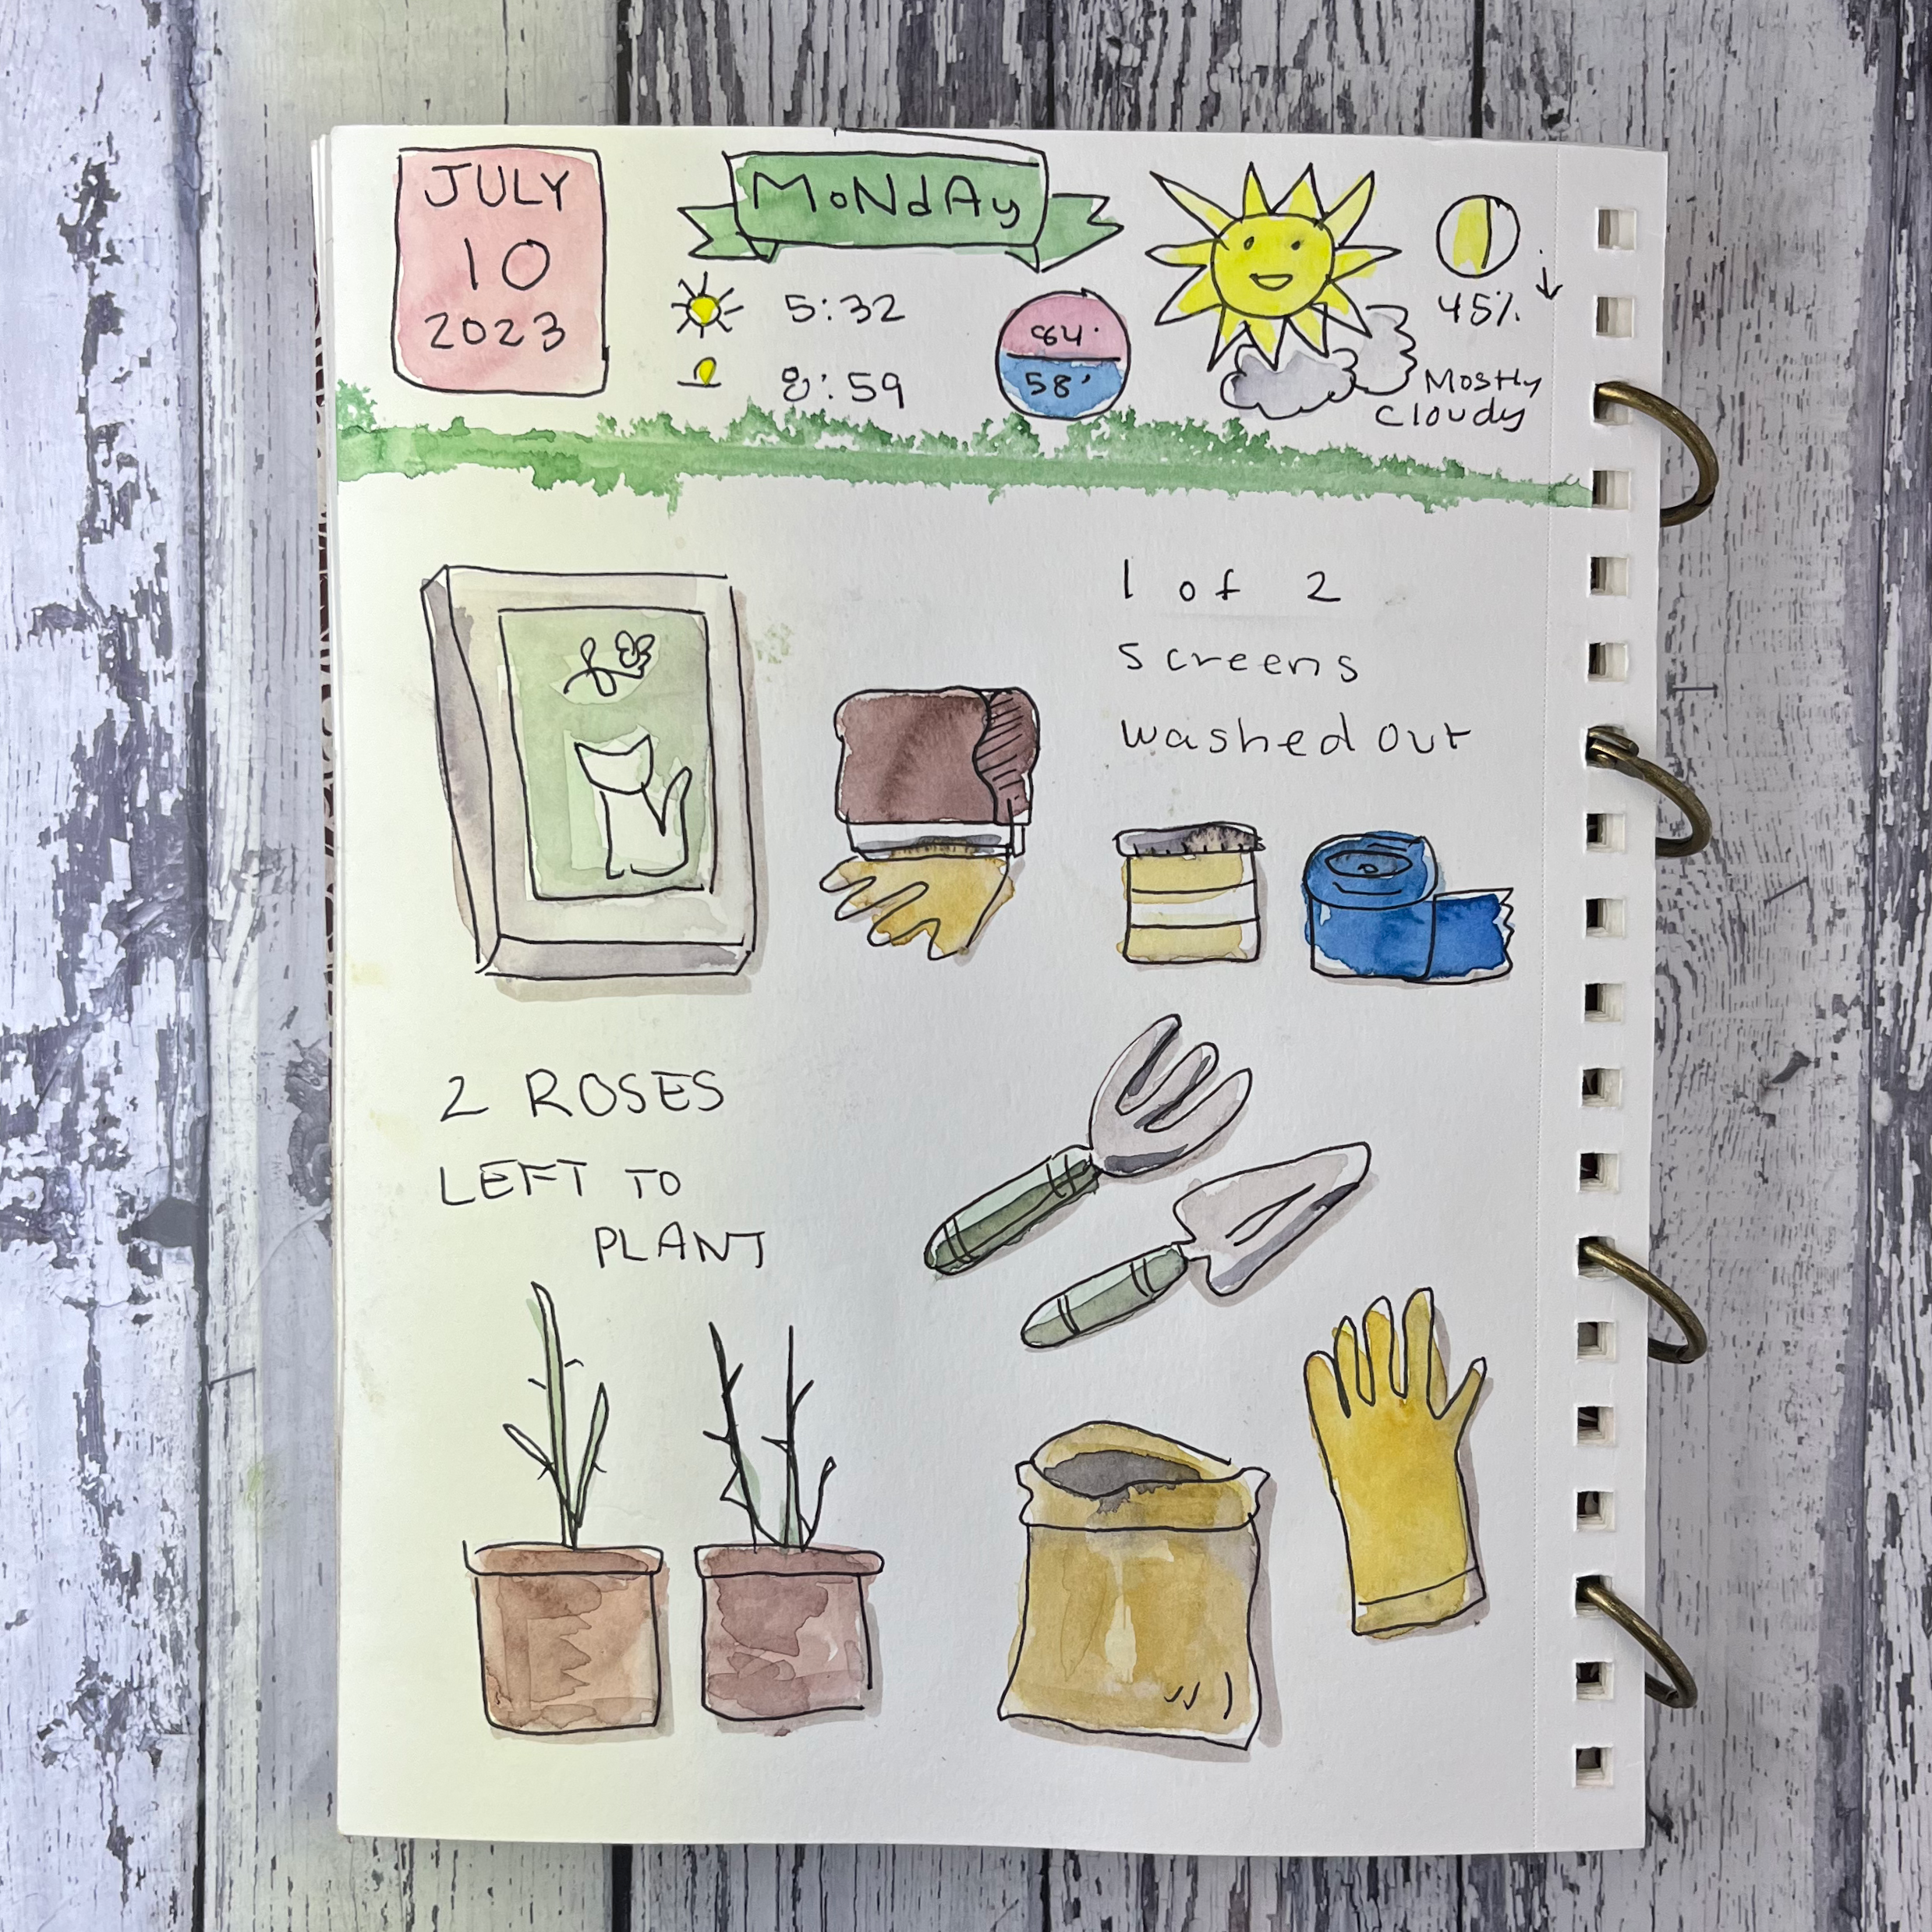 JULY
10
2023
MoNdAy
5:32
8:59
84°
58°
45%
Mostly
cloudy
1 of 2
screens
washed out
2 ROSES
LEFT TO
PLANT